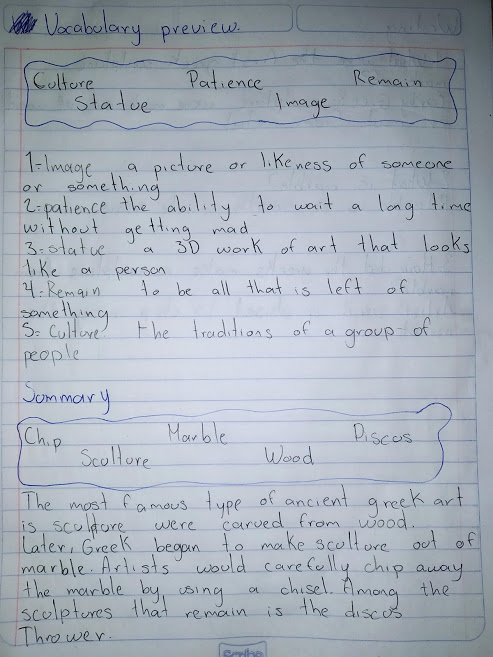 Vocabulary preview.
Culture Patience Remain
Statue Image
1=Image a picture or likeness of someone
or something
2=patience the ability to wait a long time
without getting mad
3=statue a 3D work of art that looks
like a person
4=Remain to be all that is left of
something
5= Culture: the traditions of a group of
people
Summary
Chip Marble Discus
Scolture Wood
The most famous type of ancient greek art
is sculture were carved from wood.
Later, Greek began to make scolture out of
marble. Artists would carefully chip away
the marble by using a chisel. Among the
sculptures that remain is the discus
Thrower.
Scribe